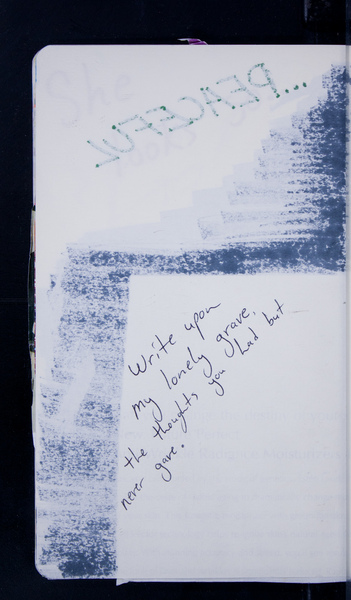 She
...PEACEFUL
Write upon
my lonely grave,
the thoughts you had but
never gave.